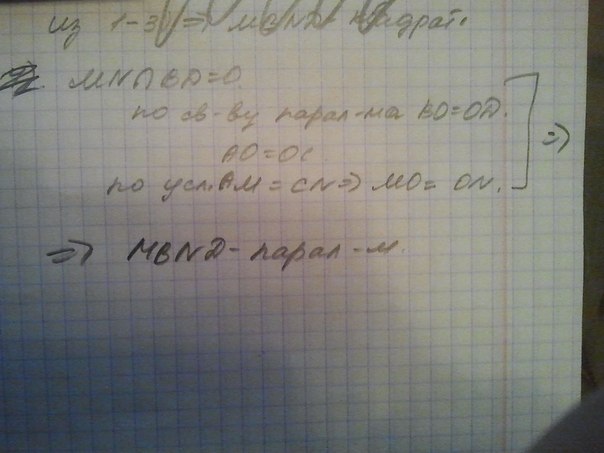 из 1-3) => MBND квадрат.
MN∩BD=O.
по св-ву парал-ма BO=OD.
AO=OC
по усл. AM=CN => MO=ON.
=>
=> MBND - парал-м.